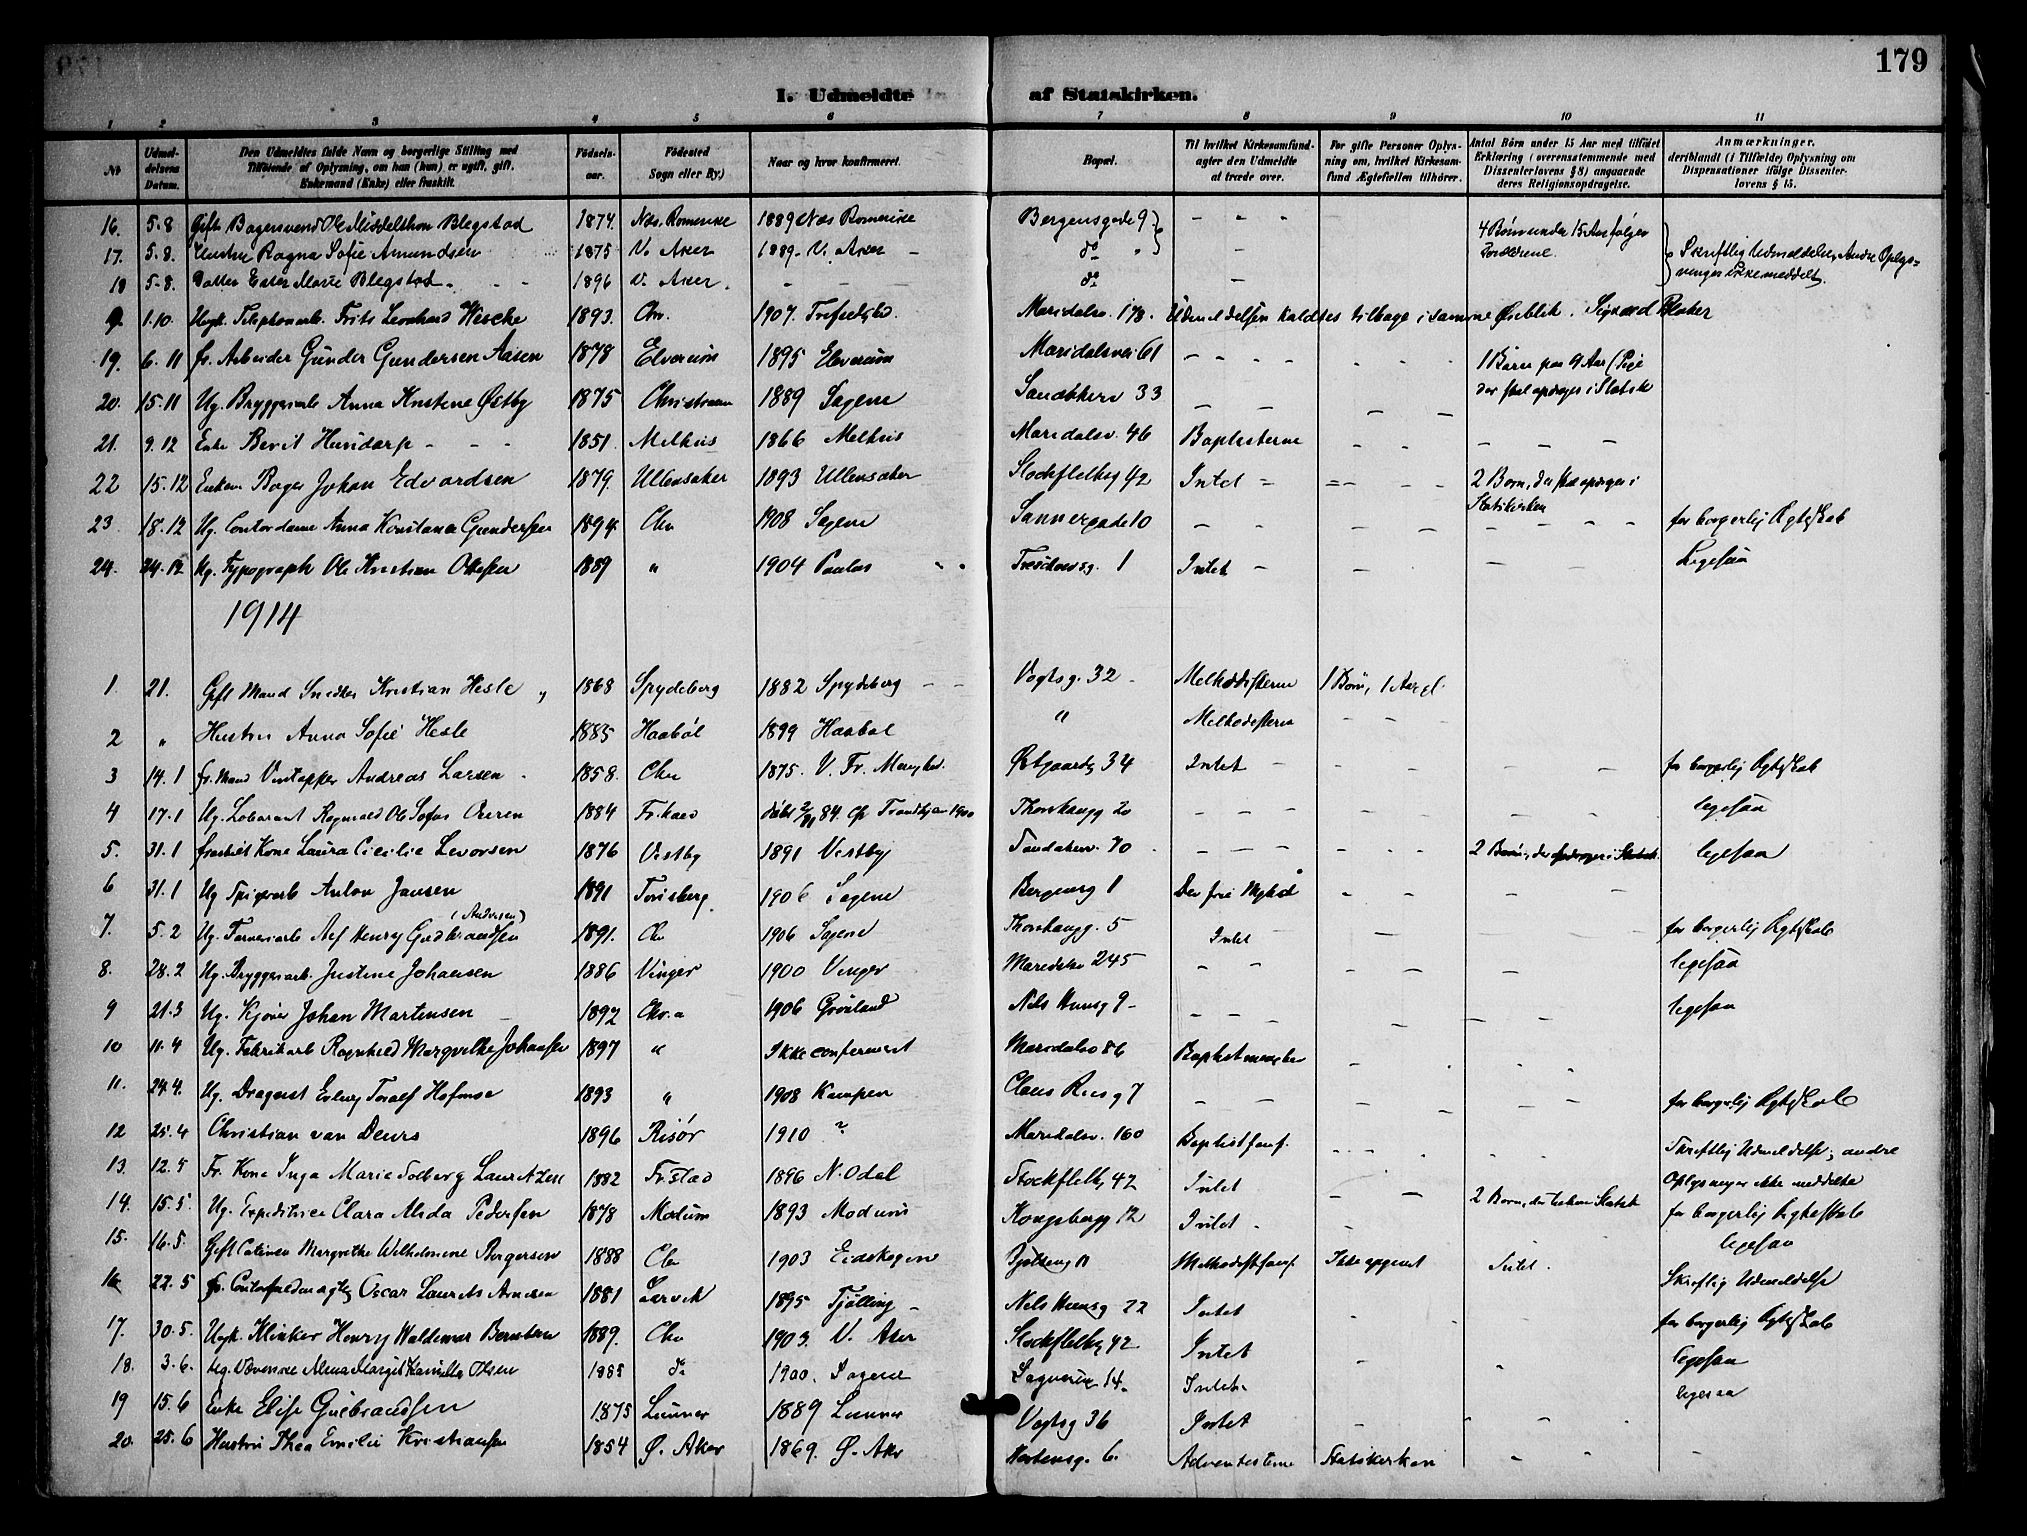 179
I. Udmeldte af Statskirken.
1 2 3 4 5 6 7 8 9 10 11
No
Udmeldelsens Datum.
Den Udmeldtes fulde Navn og borgerlige Stilling med
Tilføiende af Oplysning, om han (hun) er ugift, gift,
Enkemand (Enke) eller fraskilt.
Fødselsaar.
Fødested
Sogn eller By.)
Naar og hvor konfirmeret.
Bopæl.
Til hvilket Kirkesamfund
agter den Udmeldte
at træde over.
For gifte Personer Oplysning
om, hvilket Kirkesamfund
Ægtefællen tilhører.
Antal Børn under 15 Aar med tilføiet
Erklæring (overensstemmende med
Dissenterlovens § 8) angaaende
deres Religionsopdragelse.
Anmærkninger,
deriblandt (i Tilfælde) Oplysning om
Dispensationer ifølge Dissenterlovens § 15.
16. 5-8 Gift Bagersvend Ole Middelthon Blegstad 1874 Næs. Romerike 1889 Næs Romerike Bergensgade 9 - " " 4 Børn under 15 Aar følger Forældrene.
17. 5.8. Hustru Ragna Sofie Amundsen 1875 V. Aker 1889. V. Aker do " - Skriftlig Udmeldelse, Andre Oplysninger ikke meddelt.
18 5-8. Datter Ester Marie Blegstad 1896 V. Aker. - - do -
9. 1.10. Ugift Telephonarb. Frits Leonhard 1893. Chr. 1907. Maridalsv. 178. Udmeldelsen kaldtes tilbage i samme Øieblik. Sigurd
19. 6.11 fr. Arbeider Gunder Gundersen Aasen 1878 Elverum 1895 Elverum Maridalsvei 61 1 Barn paa 9 Aar (Pige der skal opdrages i Statsk
20. 15.11 Ug. Bryggeriarb Anna Kristine Østby 1875 Christiania 1889 Sagene Sandakkerv 33
21. 9.12 Enke Berit 1851. Melhus 1866 Melhus Maridalsv. 46 Baptisterne
22 15.12 Enkem Bager Johan Edvardsen 1879. Ullensaker 1893 Ullensaker Stockflethsg 42 Intet 2 Børn, der skal opdrages i Statskirken
23. 18.12 Ug. Contordame Anna Konstance Gundersen 1894. Chr 1908 Sagene Sannergade 10 for borgerlig Ægteskab
24. 24.12 Ug. Typograph Ole Kristian Ottesen 1889 " 1904 Paulus Treschowsg. 1 Intet Ligesaa
1914
1. 21. Gift Mand Snedker Kristian Hesle 1868 Spydeberg 1882 Spydeberg Vogtsg. 32 Methodisterne 1 Barn, 1 Aar gl.
2 " Hustru Anna Sofie Hesle 1885 Haabøl 1899 Haabøl " Methodisterne
3 14.1 fr. Mand Vintapper Andreas Larsen 1858. Chr 1875. V. Fr. Menighed. Østgaardsg 34 Intet for borgerlig Ægteskab
4 17.1 Ug. Laborant Ragnvald Ole Sofus 1884 Fr.hald døbt 84. Trondhjem 1900 Thorshaugg 20 ligesaa
5. 31.1 fraskilt Kone Laura Cicilie Levorsen 1876 Vestby 1891 Vestby Sandakerv. 70 2 Børn, der opdrages i Statsk. ligesaa
6 31.1 Ug Anton Jansen 1891 Tønsberg 1906 Sagene Bergensg 1 Den frie
7. 5.2 Ug. Farveriarb Alf Henry Gudbrandsen (Andersen) 1891. Chr 1906 Sagene Thorshaugg. 5 Intet for borgerlig Ægteskab
8. 28.2 Ug. Bryggeriarb. Justine Johansen 1886 Vinger 1900 Vinger Maridalsv 245 ligesaa
9 21.3 Ug. Kjører Johan Martensen 1892 Chr.a 1906 Grønland Nils Huusg 9 ligesaa
10 11.4 Ug. Fabrikarb Ragnhild Margrethe Johansen 1897 " Ikke confirmeret Maridalsv 86
11. 24.4. Ug. Dragerist Toralf Hofmoe 1893 " 1908 Kampen Claus Riisg 7 for borgerlig Ægteskab
12 25.4 Christian van Deurs 1896 Risør 1910 ? Maridalsv. 160 Baptistsamf. Skriftlig Udmeldelse; andre Oplysninger ikke meddelte
13. 12.5 Fr. Kone Inga Marie Solberg Lauritzen 1882 Fr.stad 1896 N. Odal Stockflethg 42 Intet 2 Børn, der Statsk for borgerlig Ægteskab
14. 15.5. Ug. Expeditrice Clara Alida Pedersen 1878 Modum 1893 Modum Kongsbergg 12 Intet ligesaa
15. 16.5. Gift Margrethe Wilhelmine Børgersen 1888 Chr 1903 Eidskogen Methodistsamf. Ikke opgivet Intet. Skriftlig Udmeldelse
16 22.5 fr. Contorfuldmægtig Oscar Laurits Arnesen 1881 Larvik 1895 Tjølling Nils Huusg 22 Intet for borgerlig Ægteskab
17. 30.5. Ugift Klinker Henry Waldemar Berntsen 1889. Chr 1903. V. Aker Stockflethg 42 Intet ligesaa
18. 3.6. ug. Væverske Alma Margit Kamilla Olsen 1885 do 1900. Sagene 14. Intet ligesaa
19 15.6 Enke Elise Gulbrandsen 1875 Lunner 1889 Lunner Vogtsg 36 Intet
20. 25.6 Hustru Thea Emilie Kristiansen 1854 Ø. Aker 1869. Ø. Aker Hortensg. 6. Adventisterne Statskirken